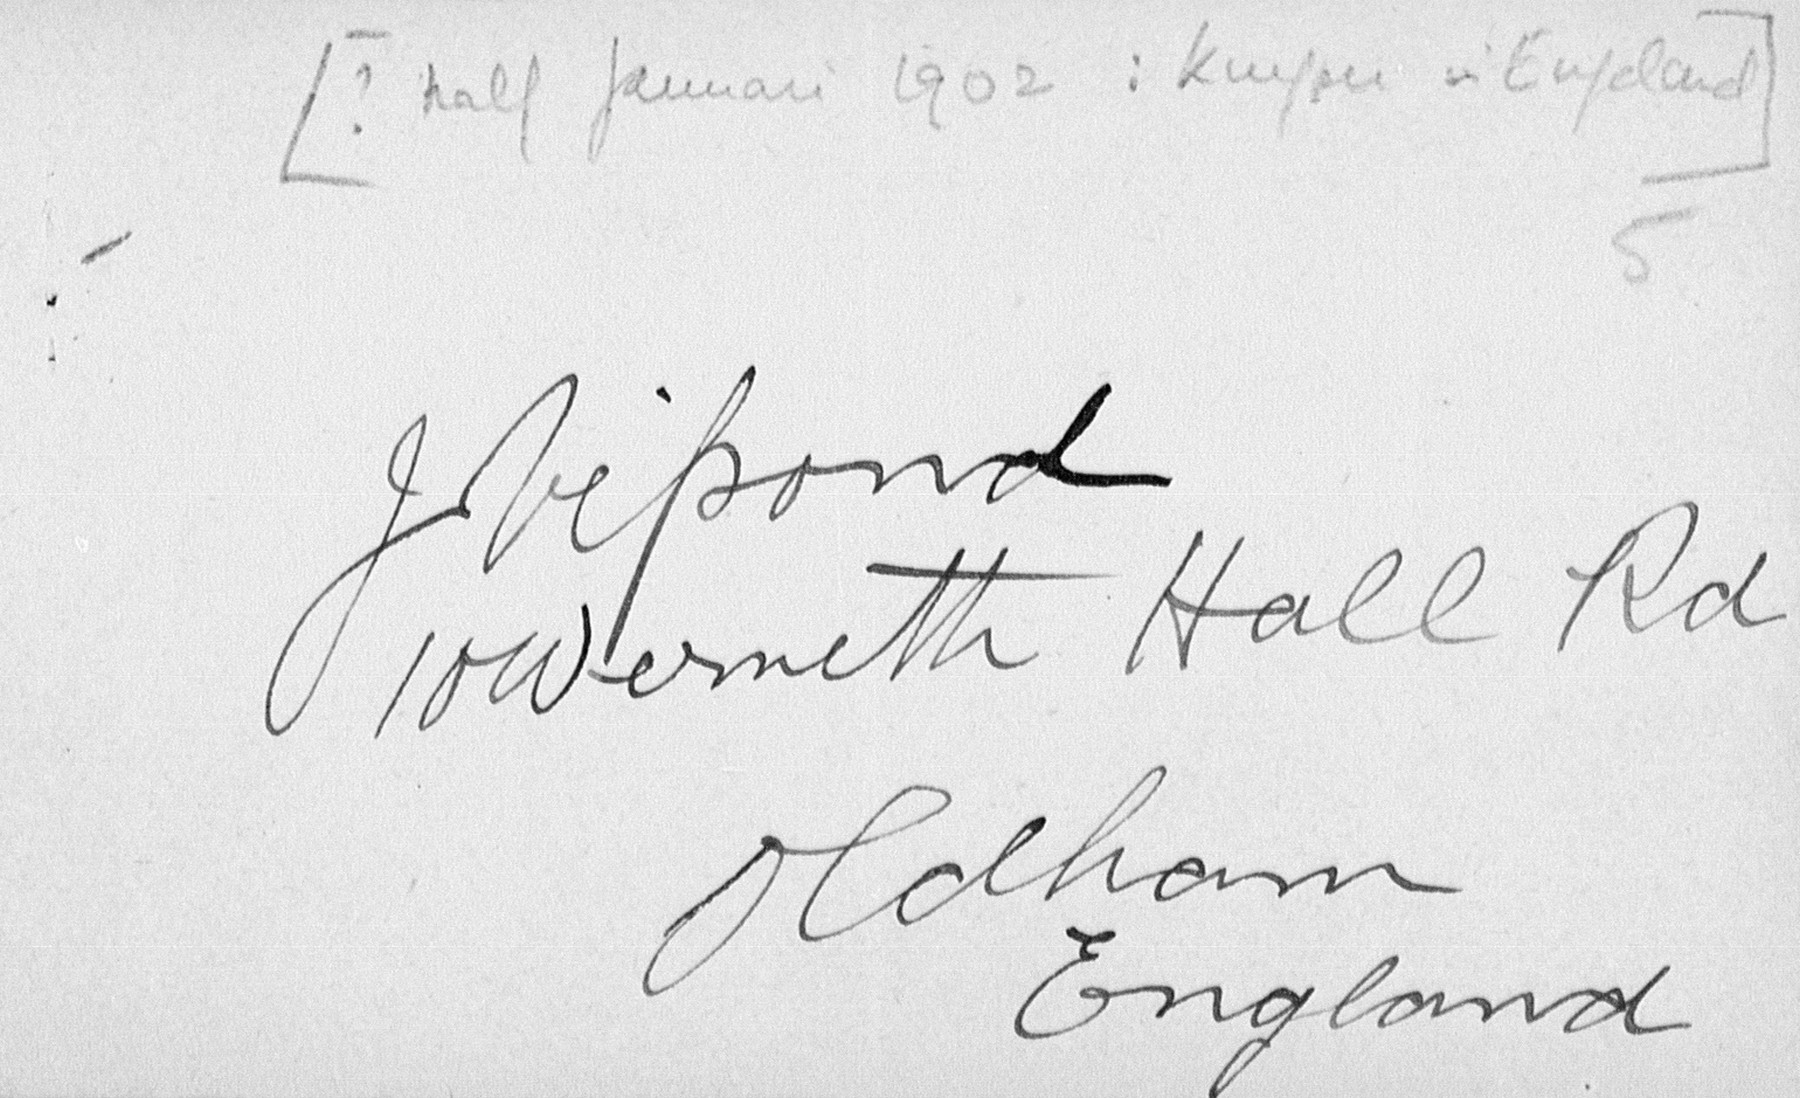 [? half Januari 1902 : Kuyper in England]
5
J Vipond
10 Werneth Hall Rd
Oldham
England